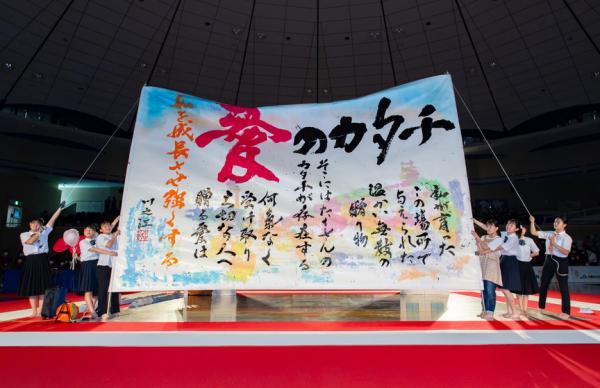 愛のカタチ
私達が育った
この場所で
与えられた
温かい無数の
贈り物
そこにはたくさんの
カタチが存在する
何気なく
受け取り
大切な人へ
贈る愛は
私を成長させ強くする